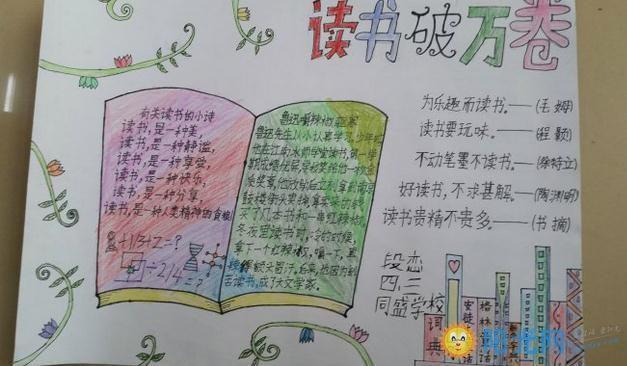 读书破万卷
有关读书的小诗
读书,是一种美,
读书,是一种静谧,
读书,是一种享受,
读书,是一种快乐,
读书,是一种分享,
读书,是一种人类精神的食粮
÷1/3+2=?
÷2/4=?
鲁迅嚼辣椒驱寒
鲁迅先生从小认真学习,少年时
他在江南水师学堂读书,第一学
期成绩优异,学校奖给他一枚金
质奖章,他没有后立刻拿到南京
鼓楼街头卖掉,
买了几本书和一串红辣椒,
冬夜里读书时,冷的时候,
拿下一个红辣椒,嚼一下,直
辣得额头冒汗,后来,他因为刻
苦读书,成了大文学家。
为乐趣而读书。——(毛姆)
读书要玩味。——(程颢)
不动笔墨不读书。——(徐特立)
好读书,不求甚解。——(陶渊明)
读书贵精不贵多。——(书摘)
段恋
四、三
同盛学校
词典
安徒生童话
格林童话